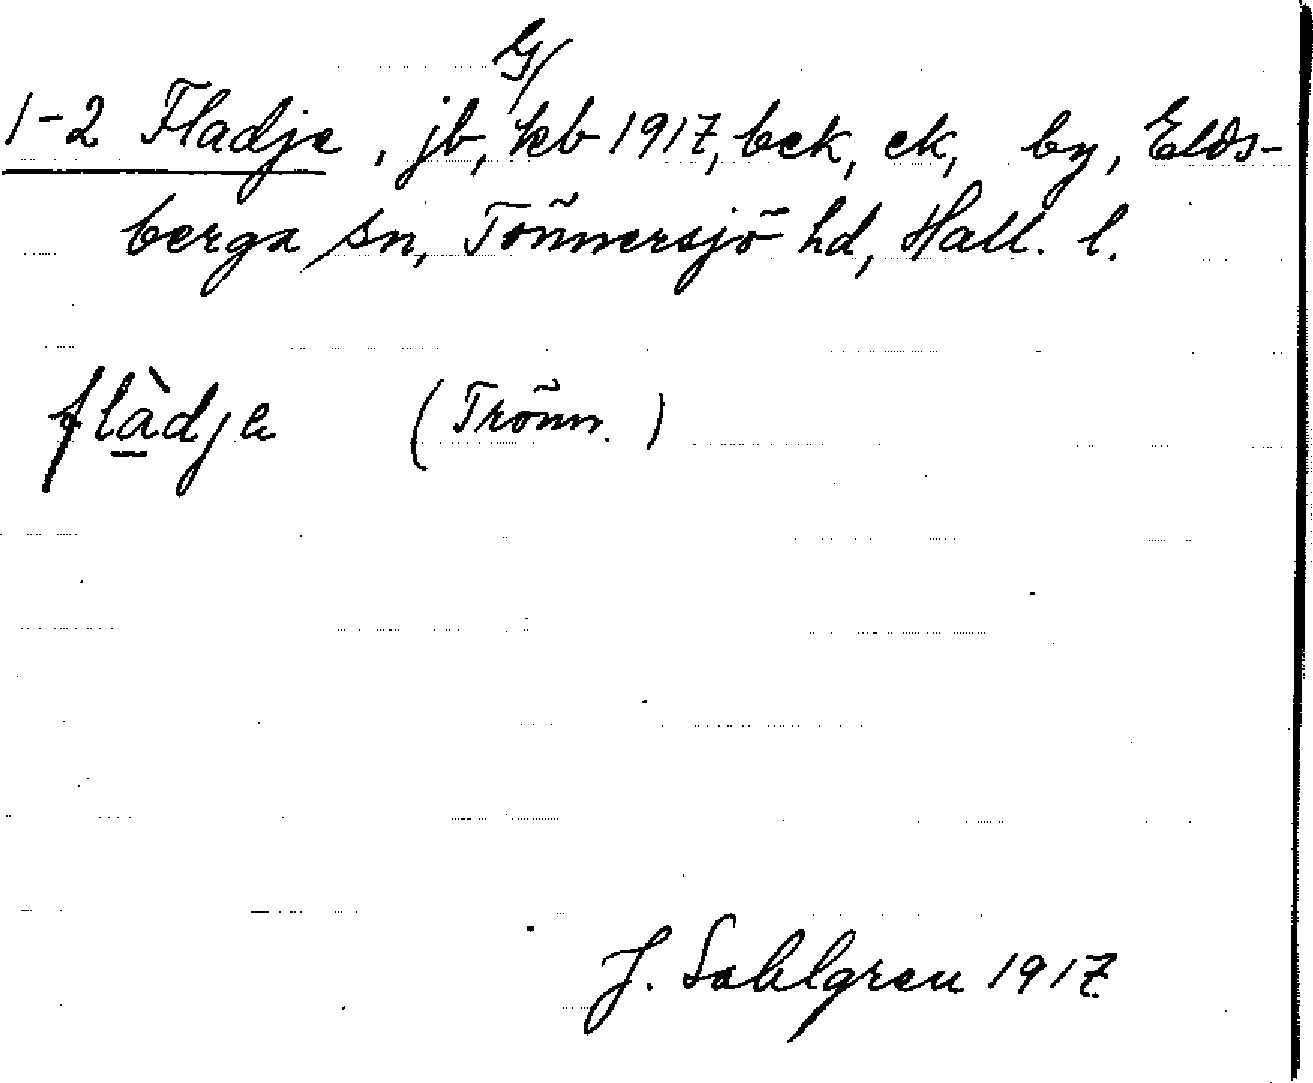 G/
1-2 Fladje, jb, kb 1917, bek, ek, by, Elds-
berga sn, Tönnersjö hd, Hall. l.
flàdje (Trönn.)
J. Sahlgren 1917.